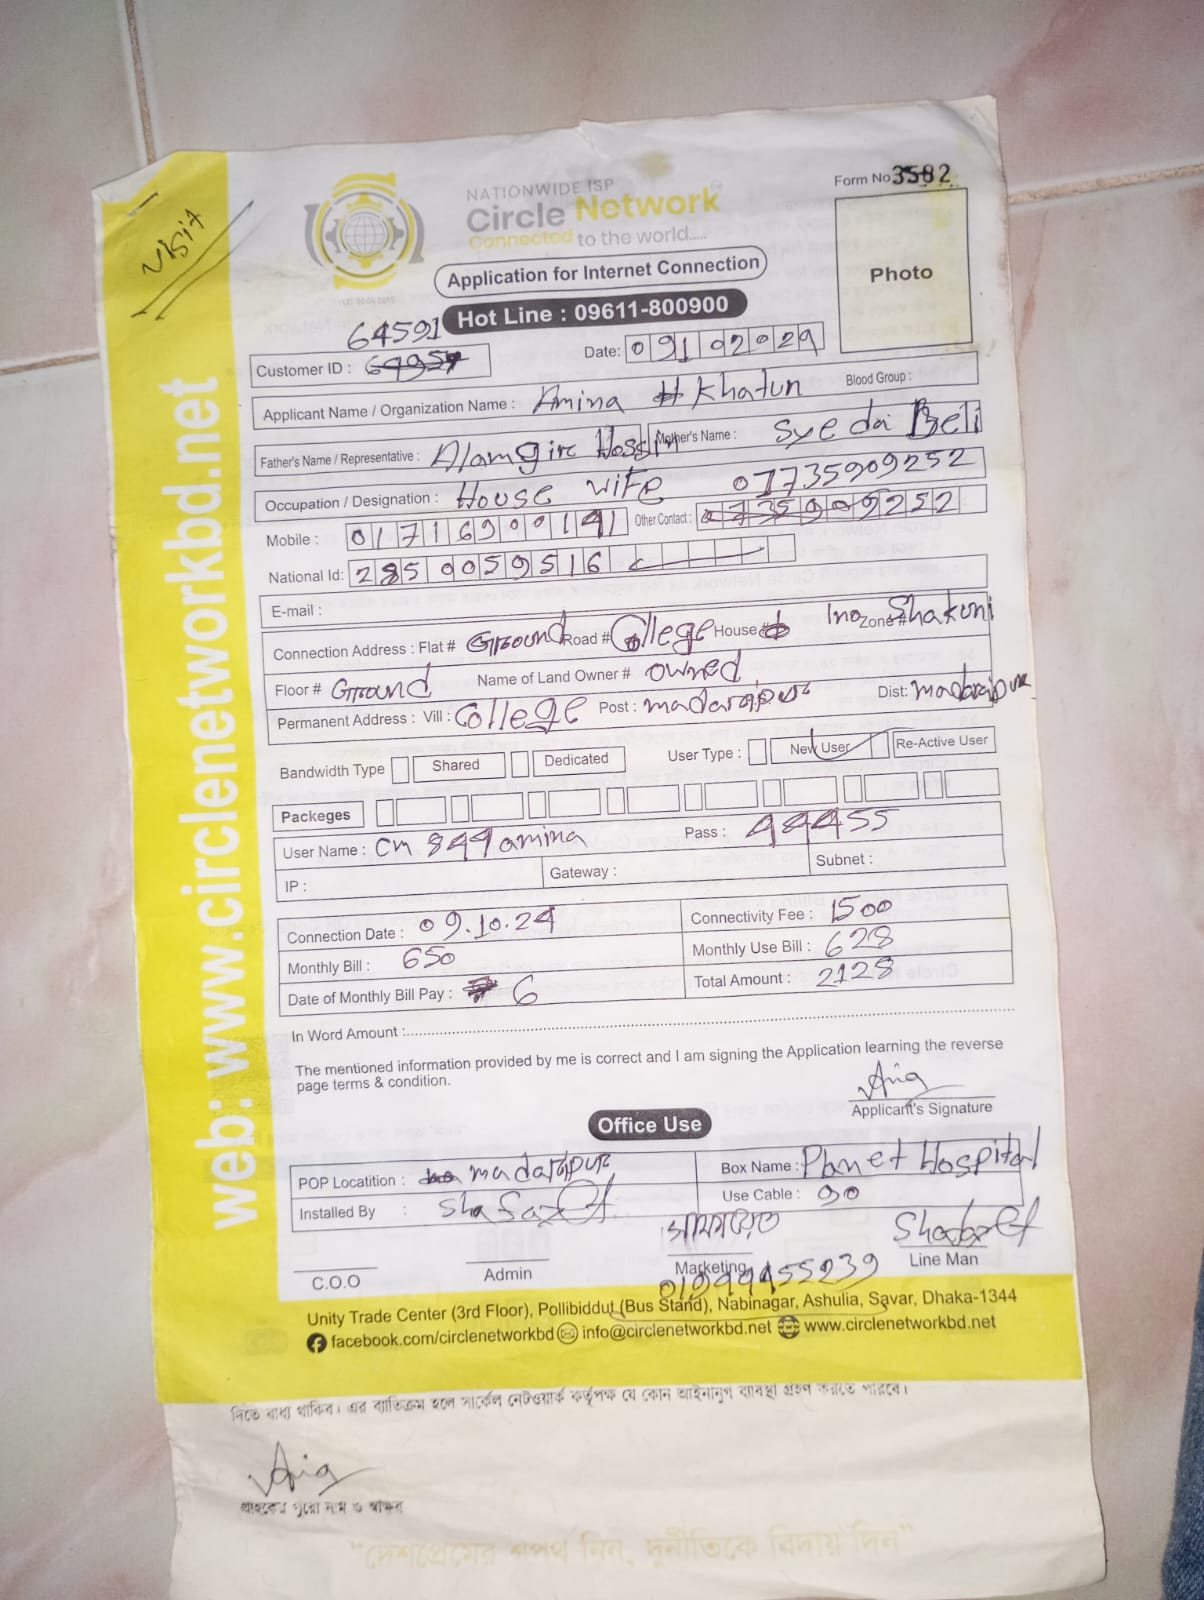 Visit
NATIONWIDE ISP
Circle Network
Connected to the world.....
Form No 3582
Photo
Application for Internet Connection
Hot Line : 09611-800900
64591
Customer ID :
Date: 09102024
Applicant Name / Organization Name : Amina Khatun Blood Group :
Father's Name / Representative : Alamgir Hossin Mother's Name : Syeda Beli
Occupation / Designation : House wife 01735909252
Mobile : 01716900141 Other Contact :
National Id: 2850059516
E-mail :
Connection Address : Flat # Ground Road # College House # Zone # Shakuni
Floor # Ground Name of Land Owner # owned
Permanent Address : Vill : College Post : madaripur Dist: madaripur
Bandwidth Type Shared Dedicated User Type : New User Re-Active User
Packeges
User Name : cn 844 amina Pass : 44455
IP : Gateway : Subnet :
Connection Date : 09.10.24 Connectivity Fee : 1500
Monthly Bill : 650 Monthly Use Bill : 628
Date of Monthly Bill Pay : 6 Total Amount : 2128
In Word Amount :
The mentioned information provided by me is correct and I am signing the Application learning the reverse
page terms & condition.
Applicant's Signature
Office Use
POP Locatition : madaripur Box Name : Planet Hospital
Installed By : Use Cable : 90
সাফায়েত
C.O.O Admin Marketing Line Man
Unity Trade Center (3rd Floor), Pollibiddut (Bus Stand), Nabinagar, Ashulia, Savar, Dhaka-1344
facebook.com/circlenetworkbd info@circlenetworkbd.net www.circlenetworkbd.net
web: www.circlenetworkbd.net
দিতে বাধ্য থাকিব। এর ব্যতিক্রম হলে সার্কেল নেটওয়ার্ক কর্তৃপক্ষ যে কোন আইনানুগ ব্যবস্থা গ্রহণ করতে পারবে।
গ্রাহকের পুরো নাম ও স্বাক্ষর
"দেশপ্রেমের শপথ নিন, দুর্নীতিকে বিদায় দিন"